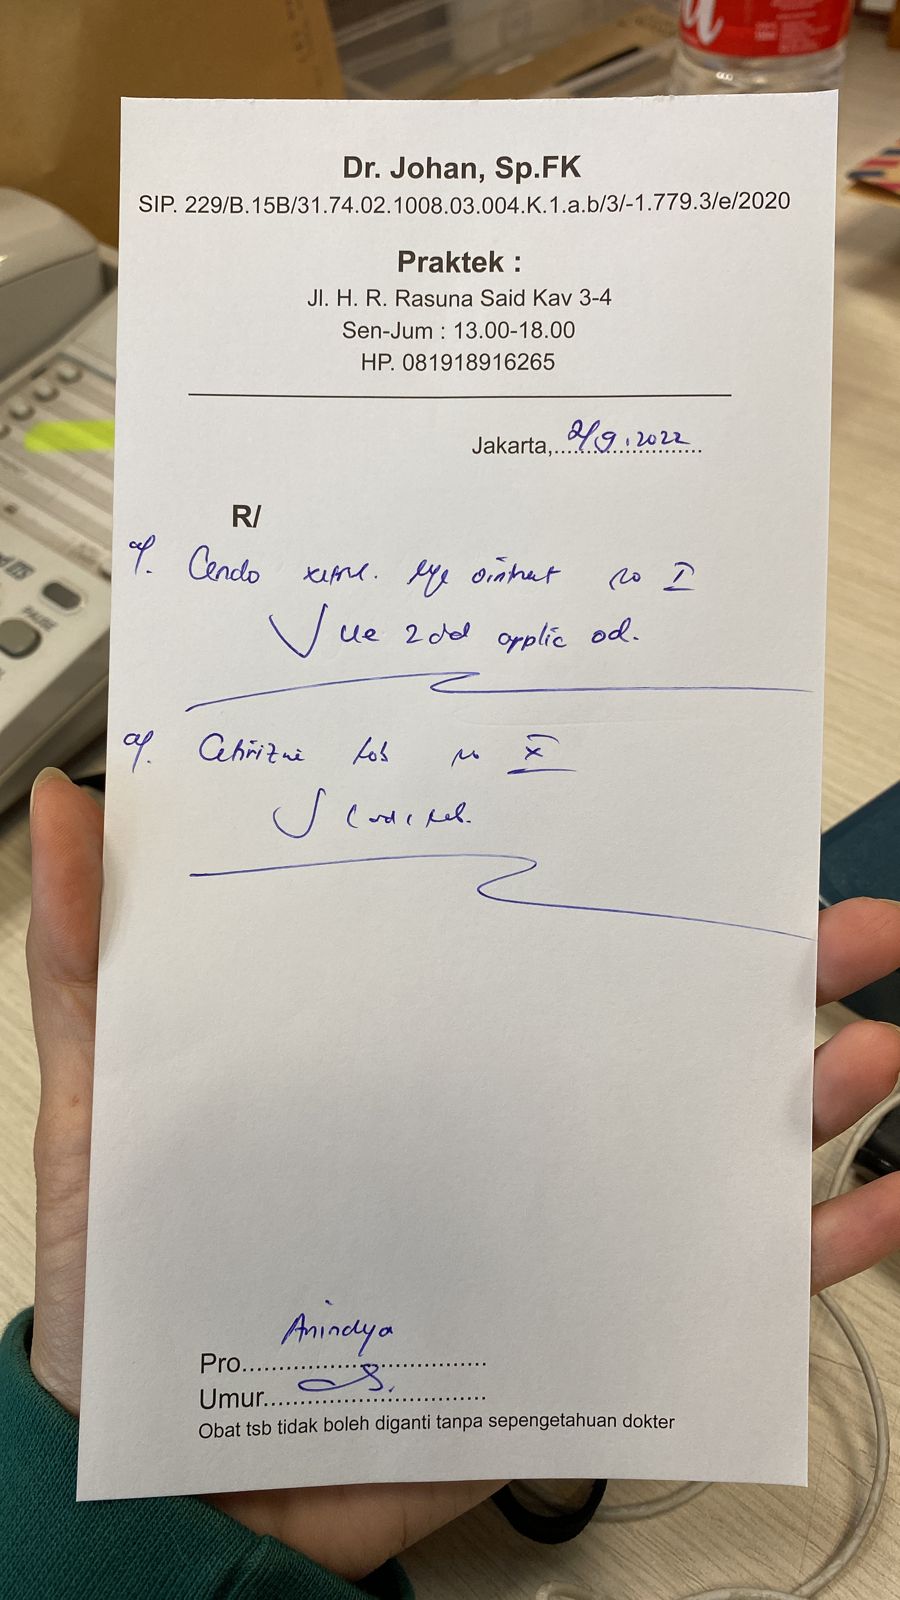 Dr. Johan, Sp.FK
SIP. 229/B.15B/31.74.02.1008.03.004.K.1.a.b/3/-1.779.3/e/2020
Praktek :
Jl. H. R. Rasuna Said Kav 3-4
Sen-Jum : 13.00-18.00
HP. 081918916265
Jakarta, 2/9.2022
R/
Cendo eye ointment no I
ue 2 dd applic od.
Cetirizine tab no X
Anindya
Pro
Umur
Obat tsb tidak boleh diganti tanpa sepengetahuan dokter